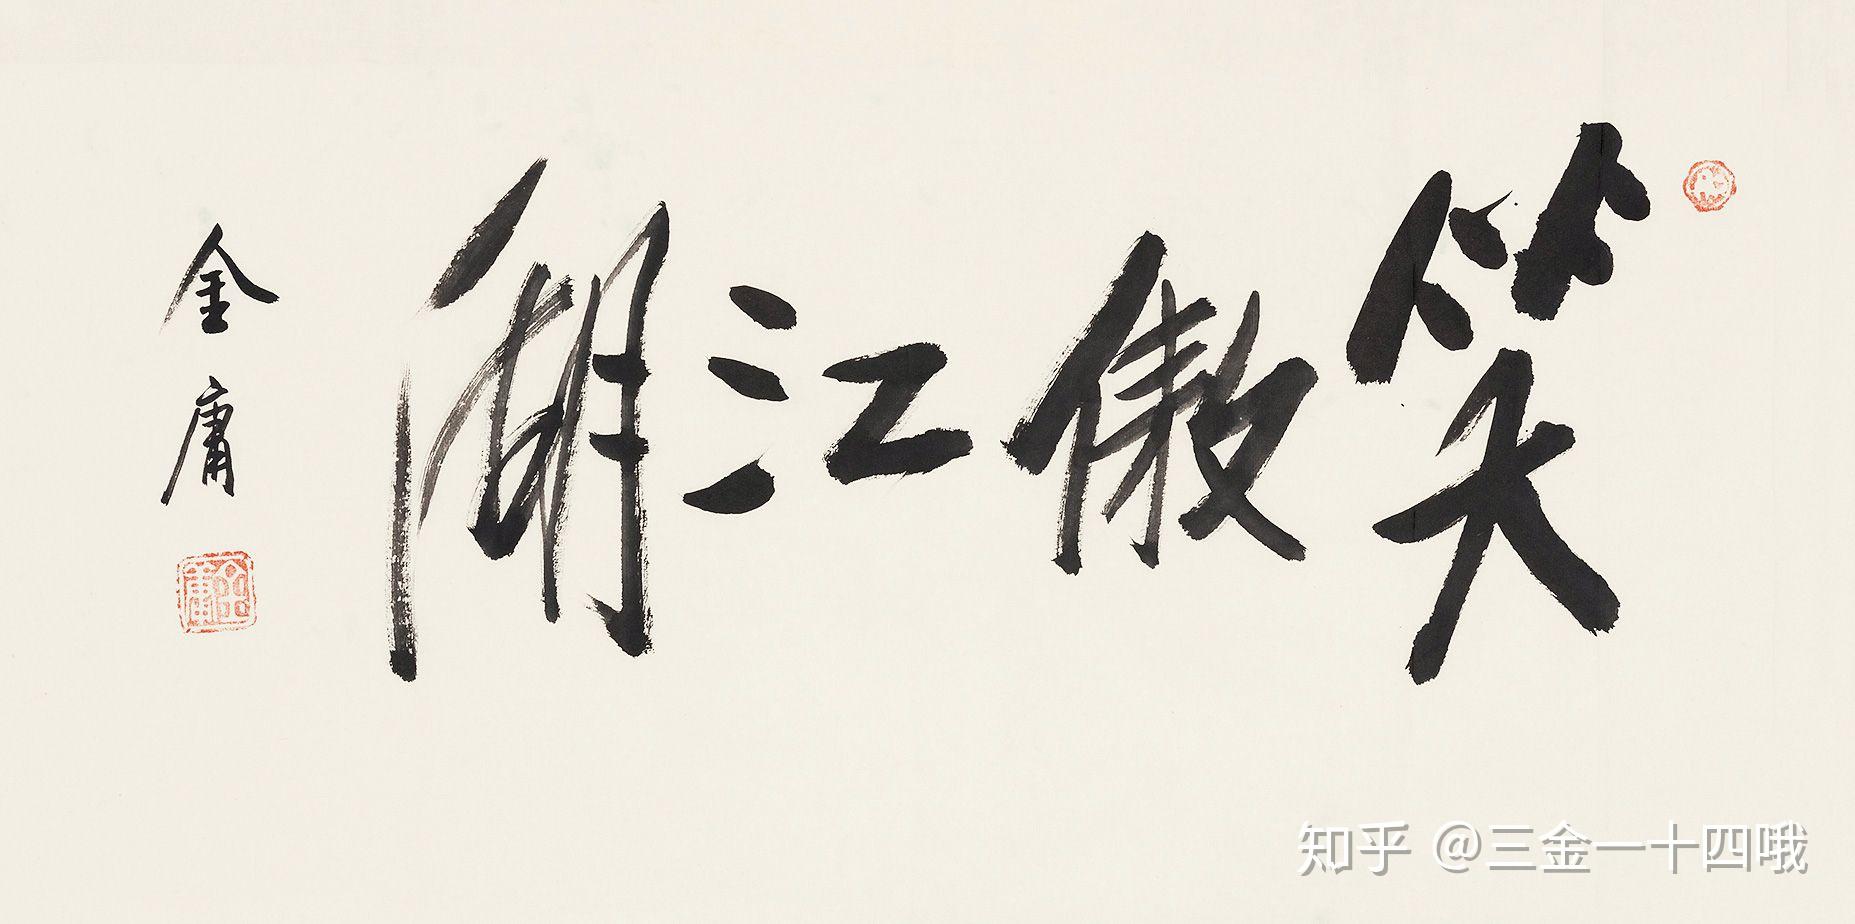 笑傲江湖
金庸
金庸
知乎 @三金一十四哦